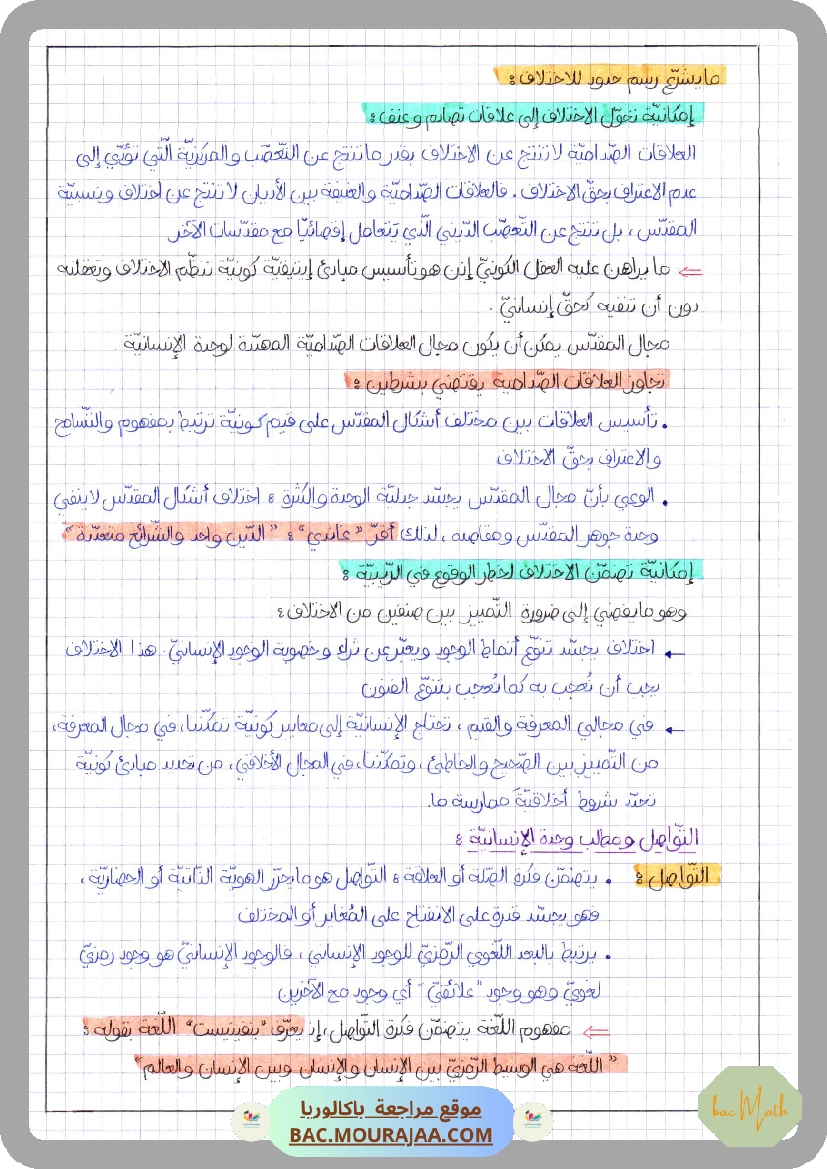 ما يشرّع رسم حدود للاختلاف :
إمكانيّة تحوّل الاختلاف إلى علاقات تصادم و عنف :
العلاقات الصّداميّة لا تنتج عن الاختلاف بقدر ما تنتج عن التّعصّب والمركزيّة الّتي تؤدّي إلى
عدم الاعتراف بحقّ الاختلاف . فالعلاقات الصّداميّة والعنيفة بين الأديان لا تنتج عن اختلاف ونسبيّة
المقدّس ، بل تنتج عن التّعصّب الدّيني الّذي يتعامل إقصائيّا مع مقدّسات الآخر
⇐ ما يراهن عليه العقل الكونيّ إذن هو تأسيس مبادئ إيتيقيّة كونيّة تنظّم الاختلاف وتعقلنه
دون أن تنفيه كحقّ إنسانيّ .
مجال المقدّس يمكن أن يكون مجال العلاقات الصّداميّة المهدّدة لوحدة الإنسانيّة
تجاوز العلاقات الصّدامية يقتضي بشرطين :
. تأسيس العلاقات بين مختلف أشكال المقدّس على قيم كونيّة ترتبط بمفهوم والتّسامح
والاعتراف بحقّ الاختلاف
. الوعي بأنّ مجال المقدّس يجسّد جدليّة الوحدة والكثرة : اختلاف أشكال المقدّس لا ينفي
وحدة جوهر المقدّس ومقاصده ، لذلك أقرّ "غاندي" : "الدّين واحد والشّرائع متعدّدة"
إمكانيّة تضمّن الاختلاف لخطر الوقوع في الرّيبيّة :
وهو ما يفضي إلى ضرورة التّمييز بين صنفين من الاختلاف :
← اختلاف يجسّد تنوّع أنماط الوجود ويعبّر عن ثراء وخصوبة الوجود الإنسانيّ . هذا الاختلاف
يجب أن نُعجب به كما نُعجب بتنوّع الفنون
← في مجالي المعرفة والقيم ، تحتاج الإنسانيّة إلى معايير كونيّة تمكّننا، في مجال المعرفة،
من التّمييز بين الصّحيح والخاطئ ، وتمكّننا، في المجال الأخلاقي ، من تحديد مبادئ كونيّة
تحدّد شروط أخلاقيّة ممارسة ما.
التّواصل ومطلب وحدة الإنسانيّة :
التّواصل : . يتضمّن فكرة الصّلة أو العلاقة : التّواصل هو ما يحرّر الهويّة الذّاتيّة أو الحضاريّة ،
فهو يجسّد قدرة على الانفتاح على المُغاير أو المختلف
. يرتبط بالبعد اللّغوي الرّمزيّ للوجود الإنساني ، فالوجود الإنسانيّ هو وجود رمزيّ
لغويّ وهو وجود "علائقيّ" أي وجود مع الآخرين
⇐ مفهوم اللّغة يتضمّن فكرة التّواصل ، إذ يعرّف "بنفينيست" اللّغة بقوله :
"اللّغة هي الوسيط الرّمزيّ بين الإنسان والإنسان وبين الإنسان والعالم"
موقع مراجعة باكالوريا
BAC.MOURAJAA.COM
bac Math